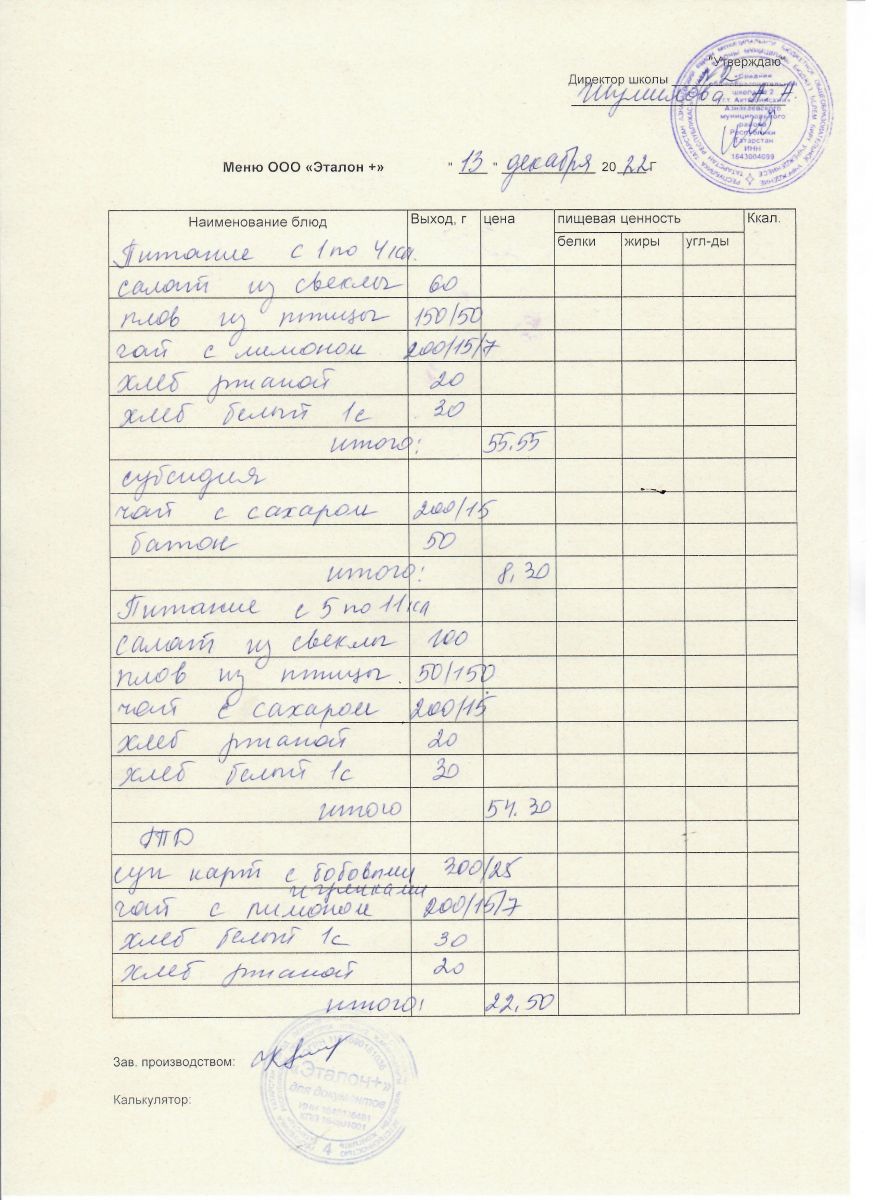 "Утверждаю"
Директор школы №2
Шулимова А А
«Средняя
общеобразовательная
школа № 2
пгт. Актюбинский»
Азнакаевского
муниципального
района
Республики
Татарстан
ИНН
1643004099
Меню ООО «Эталон +» " 13 " декабря 20 22г
Наименование блюд Выход, г цена пищевая ценность Ккал.
белки жиры угл-ды
Питание с 1 по 4 кл.
салат из свеклы 60
плов из птицы 150/50
чай с лимоном 200/15/7
хлеб ржаной 20
хлеб белый 1с 30
итого: 55.55
субсидия
чай с сахаром 200/15
батон 50
итого: 8,30
Питание с 5 по 11 кл
салат из свеклы 100
плов из птицы. 50/150
чай с сахаром 200/15
хлеб ржаной 20
хлеб белый 1с 30
итого 54.30
ГПД
суп карт с бобовыми 300/25
и гренками
чай с лимоном 200/15/7
хлеб белый 1с 30
хлеб ржаной 20
итого: 22,50
Зав. производством:
«Эталон+»
для документов
Калькулятор:
4